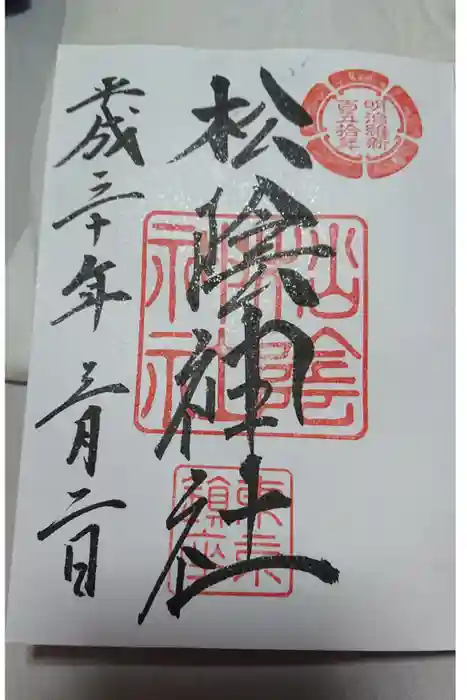 明治維新
百五拾年
松陰神社
松陰神社
東京
鎮座
平成三十年三月二日